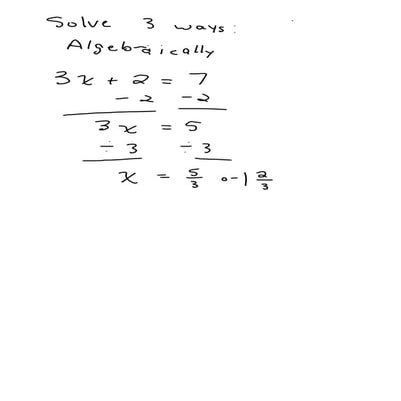 Solve 3 ways:
Algebraically
3x + 2 = 7
- 2 - 2
3x = 5
÷ 3 ÷ 3
x = 5/3 or 1 2/3